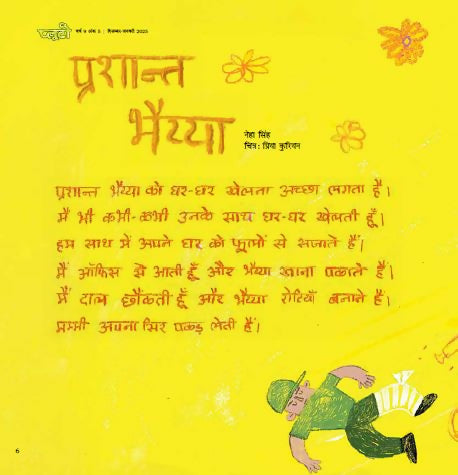 प्लूटो वर्ष 9 अंक 5 | दिसम्बर-जनवरी 2025
प्रशान्त
भैय्या
नेहा सिंह
चित्र: प्रिया कुरियन
प्रशान्त भैय्या को घर-घर खेलना अच्छा लगता है।
मैं भी कभी-कभी उनके साथ घर-घर खेलती हूँ।
हम साथ में अपने घर को फूलों से सजाते हैं।
मैं ऑफिस से आती हूँ और भैय्या खाना पकाते हैं।
मैं दाल छौंकती हूँ और भैय्या रोटियाँ बनाते हैं।
मम्मी अपना सिर पकड़ लेती हैं।
6